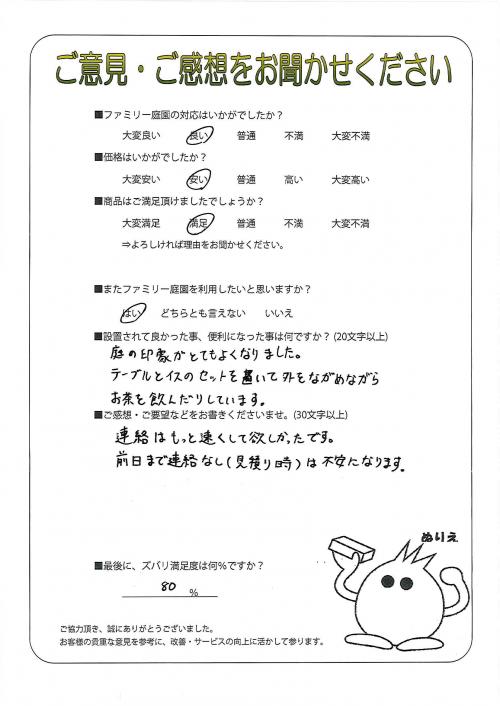 ご意見・ご感想をお聞かせください
■ファミリー庭園の対応はいかがでしたか？
大変良い 良い 普通 不満 大変不満
■価格はいかがでしたか？
大変安い 安い 普通 高い 大変高い
■商品はご満足頂けましたでしょうか？
大変満足 満足 普通 不満 大変不満
⇒よろしければ理由をお聞かせください。
■またファミリー庭園を利用したいと思いますか？
はい どちらとも言えない いいえ
■設置されて良かった事、便利になった事は何ですか？(20文字以上)
庭の印象がとてもよくなりました。
テーブルとイスのセットを置いて外をながめながら
お茶を飲んだりしています。
■ご感想・ご要望などをお書きくださいませ。(30文字以上)
連絡はもっと速くして欲しかったです。
前日まで連絡なし(見積り時)は不安になります。
ぬりえ
■最後に、ズバリ満足度は何％ですか？
80 ％
ご協力頂き、誠にありがとうございました。
お客様の貴重な意見を参考に、改善・サービスの向上に活かして参ります。